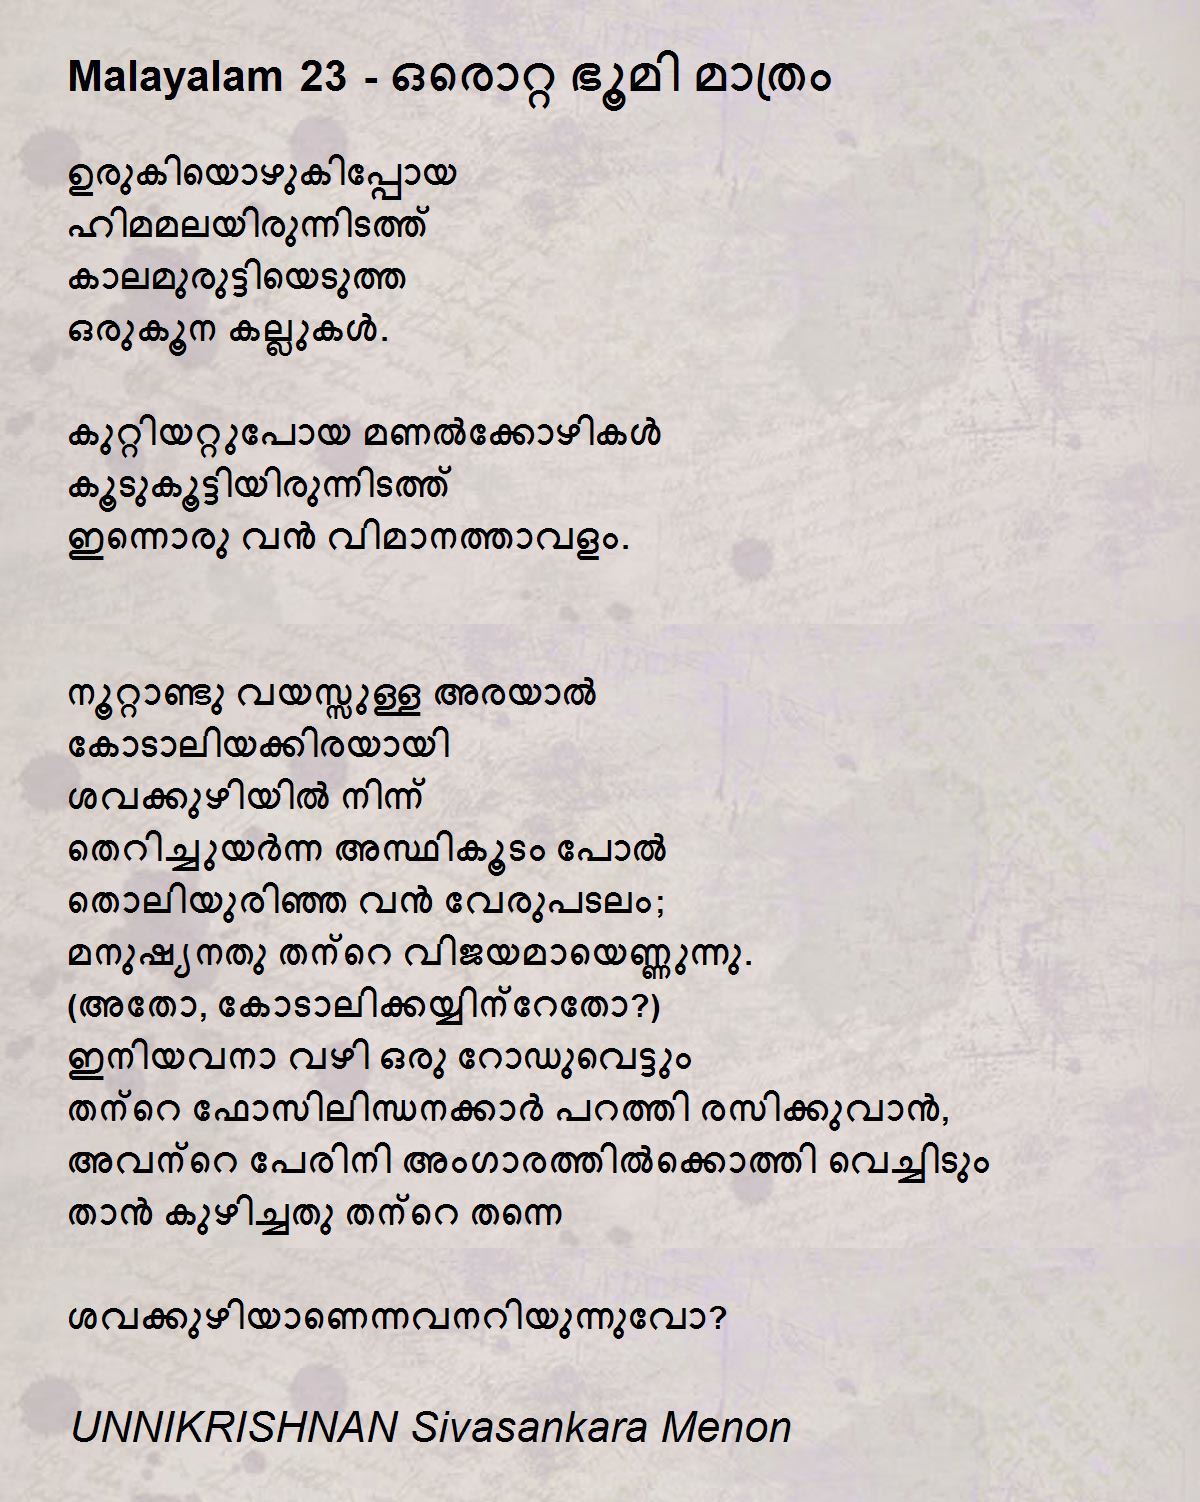 Malayalam 23 - ഒരൊറ്റ ഭൂമി മാത്രം
ഉരുകിയൊഴുകിപ്പോയ
ഹിമമലയിരുന്നിടത്ത്
കാലമുരുട്ടിയെടുത്ത
ഒരുകൂന കല്ലുകൾ.
കുറ്റിയറ്റുപോയ മണൽക്കോഴികൾ
കൂടുകൂട്ടിയിരുന്നിടത്ത്
ഇന്നൊരു വൻ വിമാനത്താവളം.
നൂറ്റാണ്ടു വയസ്സുള്ള അരയാൽ
കോടാലിയക്കിരയായി
ശവക്കുഴിയിൽ നിന്ന്
തെറിച്ചുയർന്ന അസ്ഥികൂടം പോൽ
തൊലിയുരിഞ്ഞ വൻ വേരുപടലം;
മനുഷ്യനതു തന്റെ വിജയമായെണ്ണുന്നു.
(അതോ, കോടാലിക്കയ്യിന്റേതോ?)
ഇനിയവനാ വഴി ഒരു റോഡുവെട്ടും
തന്റെ ഫോസിലിന്ധനക്കാർ പറത്തി രസിക്കുവാൻ,
അവന്റെ പേരിനി അംഗാരത്തിൽക്കൊത്തി വെച്ചിടും
താൻ കുഴിച്ചതു തന്റെ തന്നെ
ശവക്കുഴിയാണെന്നവനറിയുന്നുവോ?
UNNIKRISHNAN Sivasankara Menon